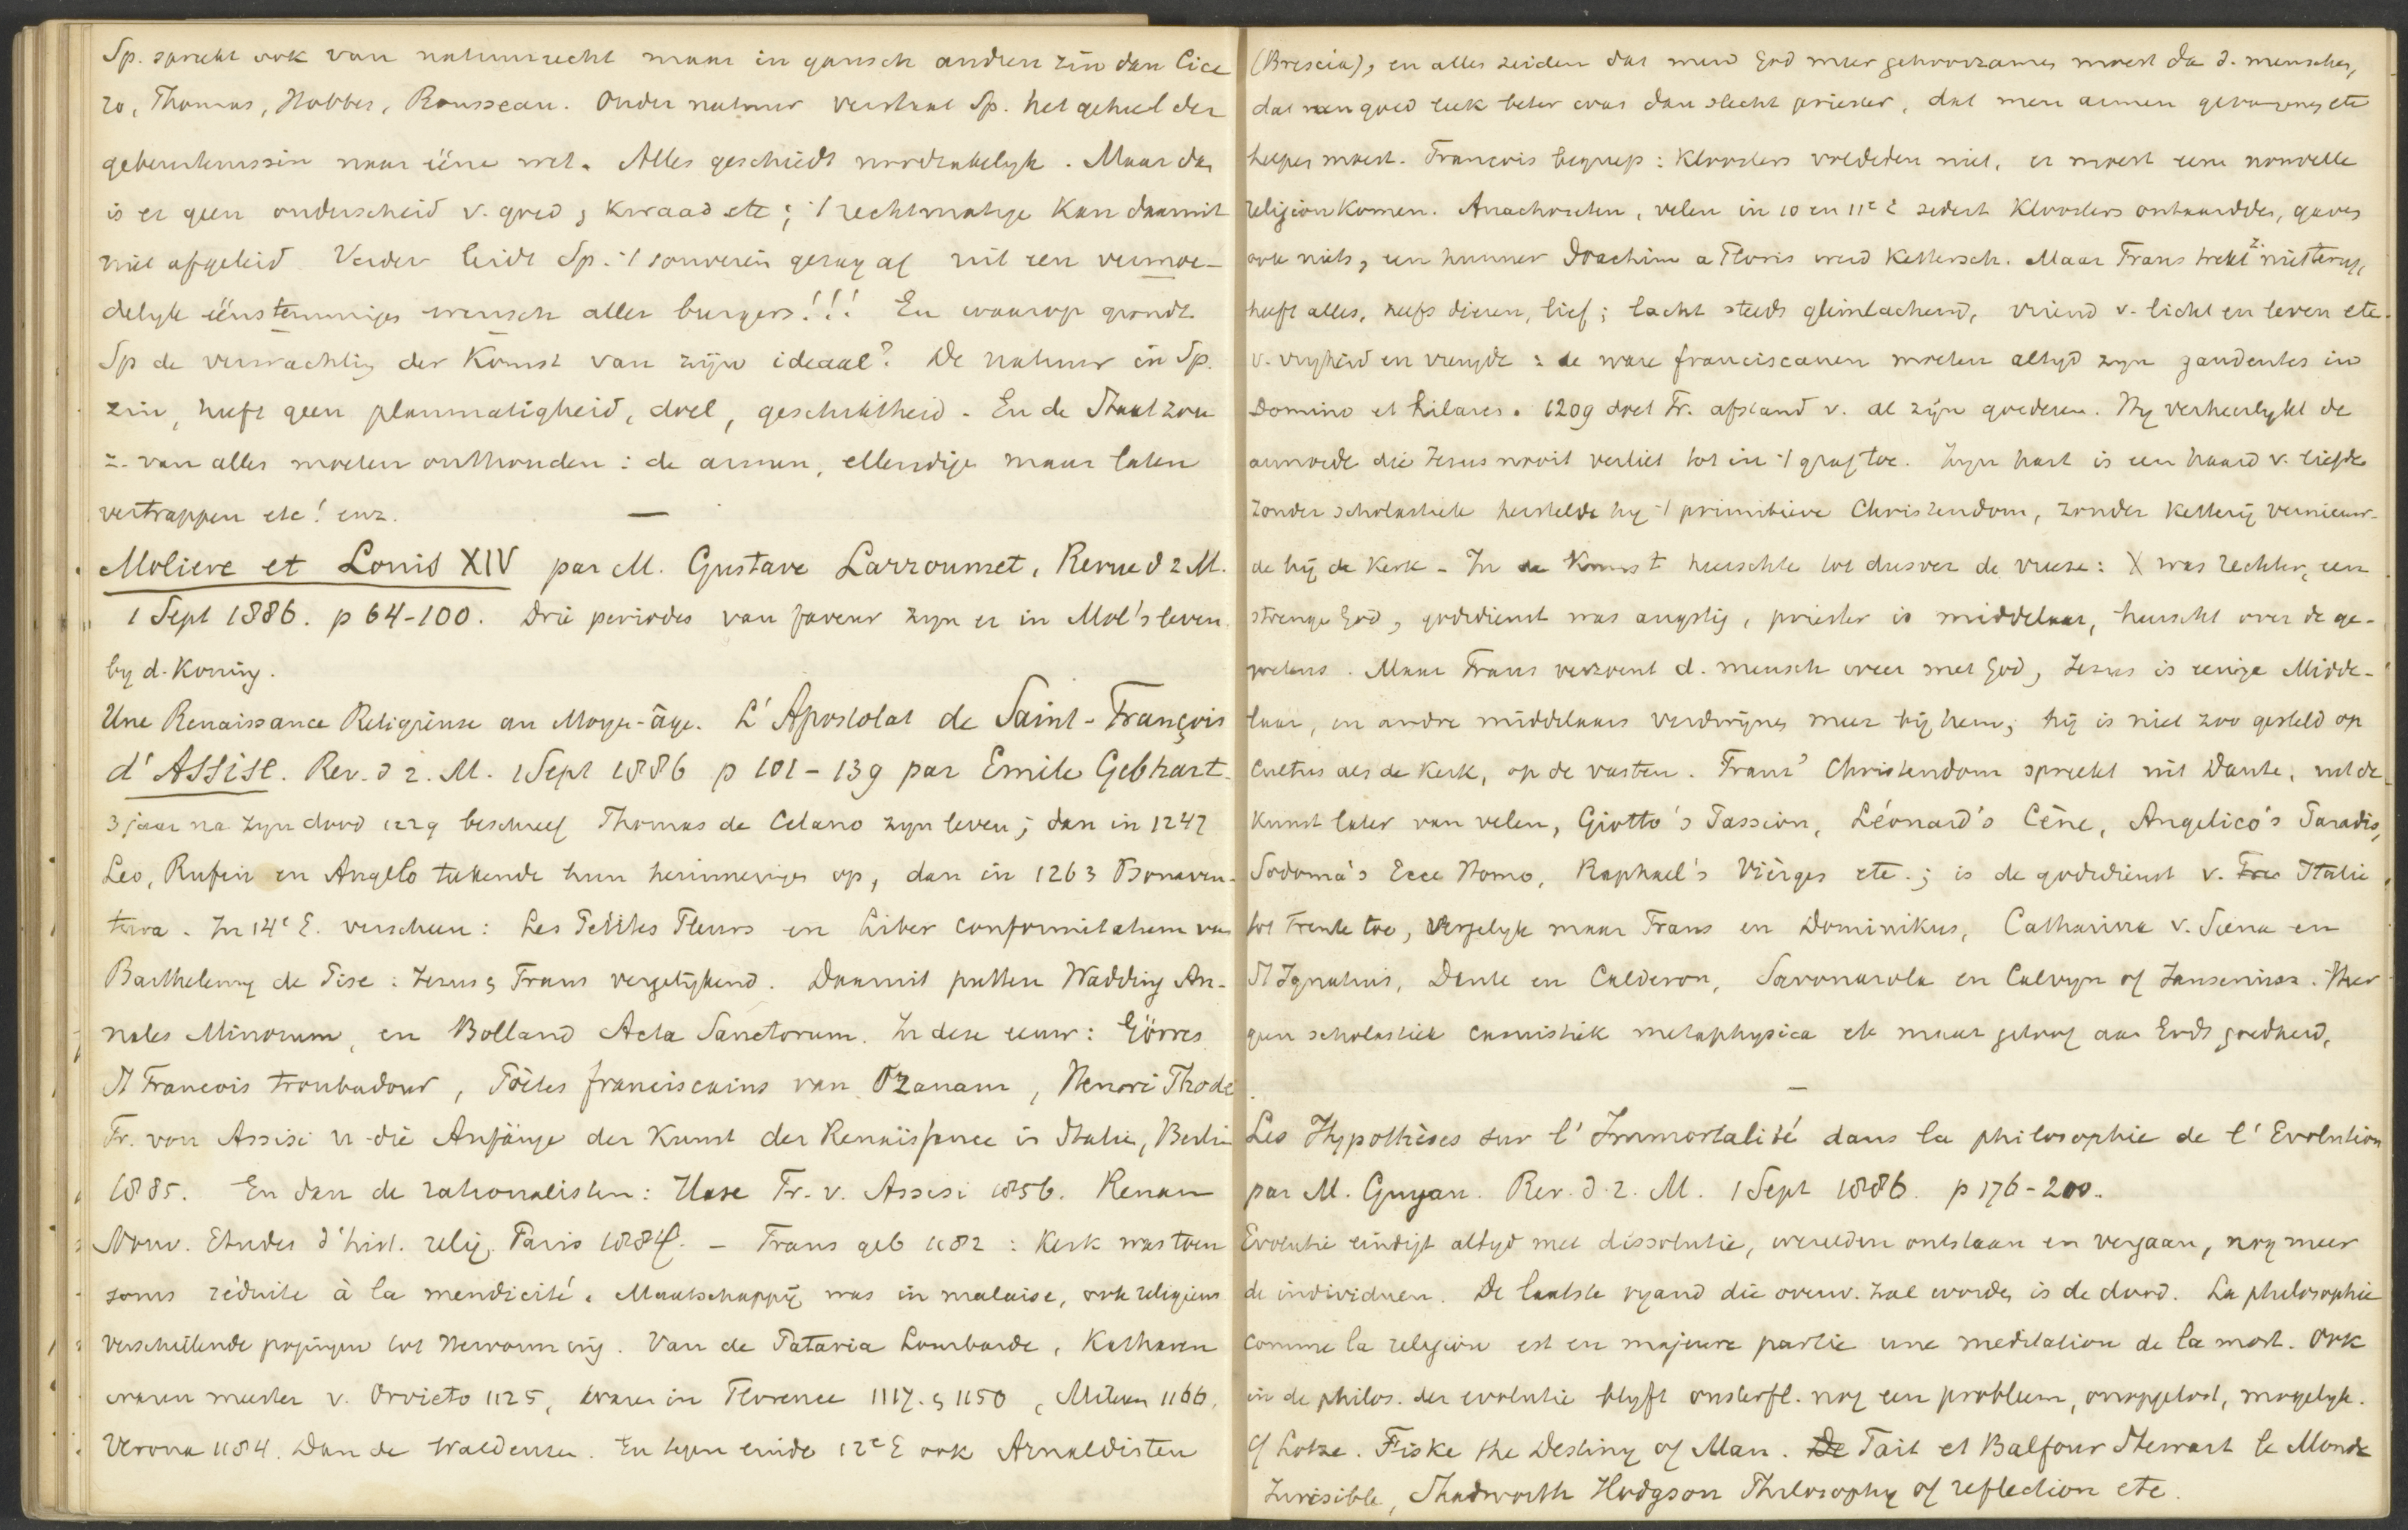 Sp. spreekt ook van natuurrecht maar in gansch andren zin dan Cice
ro, Thomas, Hobbes, Rousseau. Onder natuur verstaat Sp. het geheel der
gebeurtenissen naar ééne wet. Alles geschiedt noodzakelyk. Maar dan
is er geen onderscheid v. goed, kwaad etc; 't rechtmatige kan daaruit
niet afgeleid. Verder leidt Sp. 't souverein gezag af uit een vermoe-
delyk éénstemmigen wensch aller burgers!!! En waarop grondt
Sp de verwachting der komst van zijn ideaal? De natuur in Sp.
zin, heeft geen planmatigheid, doel, geschiktheid. En de Staat zou
z. van alles moeten onthouden: de armen, ellendige maar laten
vertrappen etc! enz. —
Moliere et Louis XIV par M. Gustave Larroumet, Revue d 2 M.
1 Sept 1886. p 64-100. Drie periodes van faveur zyn er in Mol's leven
by d. Koning.
Une Renaissance Religieuse au Moyen-âge. L'Apostolat de Saint-François
d'Assise. Rev. d 2. M. 1 Sept 1886 p 101-139 par Emile Gebhart.
3 jaar na zyn dood 1229 beschreef Thomas de Celano zyn leven; dan in 1247
Leo, Rufin en Angelo tekende hun herinneringen op, dan in 1263 Bonaven-
tura. In 14e E. verscheen: Les Petites Fleurs en Liber conformitatum van
Barthelemy de Pise: Jezus & Frans vergelijkend. Daaruit putten Wadding An-
nales Minorum, en Bolland Acta Sanctorum. In deze eeuw: Görres
St Francois troubadour, Poètes franciscains van Ozanam, Henri Thode
Fr. von Assisi u die Anfänge der Kunst der Renaissance in Italie, Berlin
1885. En dan de rationalisten: Hase Fr. v. Assisi 1856. Renan
Nouv. Etudes d'hist. relig. Paris 1884. – Frans geb 1182: Kerk was toen
soms réduite à la mendicité. Maatschappij was in malaise, ook religieus
verschillende pogingen tot hervorming. Van de Pataria Lombarde, Katharen
waren meester v. Orvieto 1125, waren in Florence 1117 & 1150, Milaan 1166,
Verona 1184. Dan de Waldenzen. En tegen einde 12e E ook Arnaldisten
(Brescia), en allen zeiden dat men God meer gehoorzamen moest dan d. menschen,
dat een goed leek beter was dan slecht priester, dat men armen gevangenen etc
helpen moest. Francois begreep: kloosters voldeden niet, er moest eene nouvelle
religion komen. Anachoreten, velen in 10 en 11e E sedert kloosters ontaardden, gaven
ook niets, een hunner Joachim a Floris werd kettersch. Maar Frans trekt z. niet terug,
heeft alles, zelfs dieren, lief; lacht steeds glimlachend, vriend v. licht en leven etc.
v. vryheid en vreugde: de ware franciscanen moeten altyd zyn gaudentes in
Domino et hilares. 1209 doet Fr. afstand v. al zijn goederen. Hy verheerlykt de
armoede die Jezus nooit verliet tot in 't graf toe. Zyn hart is een haard v. liefde
Zonder scholastiek herstelde hy 't primitieve Christendom, zonder ketterij vernieuw-
de hij de kerk – In de kunst heerschte tot dusver de vreeze: X was rechter, een
strenge God, godsdienst was angstig, priester is middelaar, heerscht over de ge-
wetens. Maar Frans verzoent d. mensch weer met God, Jezus is eenige Midde-
laar, en andre middelaars verdwijnen meer bij hem; hij is niet zoo gesteld op
Cultus als de kerk, op de vasten. Frans' Christendom spreekt uit Dante, uit de
kunst later van velen, Giotto's Passion, Léonard's Cène, Angelico's Paradis,
Sodoma's Ecce Homo, Raphael's Vièrges etc.; is de godsdienst v. Italie
tot Trente toe, vergelyk maar Frans en Dominikus, Catharina v. Siena en
St Ignatius, Dante en Calderon, Savonarola en Calvyn of Jansenisme. Hier
geen scholastiek casuistiek metaphysica etc maar geloof aan Gods goedheid.
—
Les Hypothèses sur l'Immortalité dans la philosophie de l'Evolution
par M. Guyau. Rev. d. 2. M. 1 Sept 1886. p 176-200.
Evolutie eindigt altyd met dissolutie, werelden ontstaan en vergaan, nog meer
de individuen. De laatste vyand die overw. zal worden is de dood. La philosophie
comme la religion est en majeure partie une meditation de la mort. Ook
in de philos. der evolutie blyft onsterfl. nog een probleem, onopgelost, mogelyk.
Cf Lotze. Fiske the Destiny of Man. De Tait et Balfour Stewart le Monde
Invisible, Shadworth Hodgson Philosophy of reflection etc.